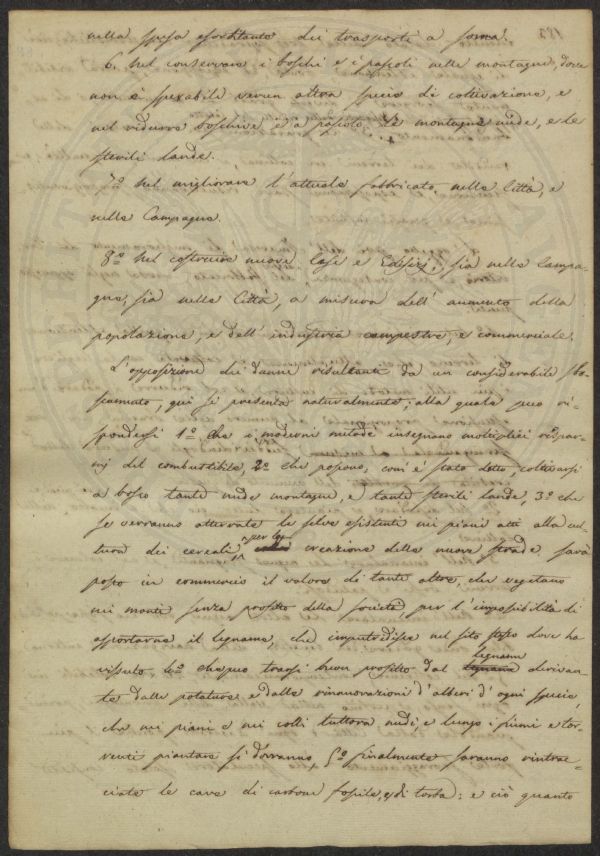 nella spesa esorbitante dei trasporti a soma.
6. Nel conservare i boschi e i pascoli nelle montagne, dove
non è sperabile verun altra specie di coltivazione, e
nel ridurre boschive e a pascolo le montagne nude, e le
sterili lande.
7.º Nel migliorare l'attuale fabbricato nella Città, e
nella Campagna.
8.º Nel costruire nuove Case e Edifizj, sia nella Campa-
gna, sia nella Città, a misura dell' aumento della
popolazione, e dell' industria campestre, e commerciale.
L'opposizione dei danni risultanti da un considerabile sbo-
scamento, qui si presenta naturalmente; alla quale puo ri-
spondersi 1º che i moderni metodi insegnano molteplici rispar-
mj del combustibile, 2º che possono, com'è stato detto, coltivarsi
a bosco tante nude montagne, e tante sterili lande, 3º che
se verranno atterrate le selve esistenti nei piani atti alla cul-
tura dei cereali, per la creazione delle nuove strade sarà
posto in commercio il valore di tante altre, che vegetano
nei monti senza profitto della società, per l'impossibilità di
asportarne il legname, che imputredisce nel sito stesso dove ha
vissuto, 4º che puo trarsi buon profitto dal legname derivan-
te dalle potature e dalle rinnovazioni d'alberi d'ogni specie,
che nei piani e nei colli tuttora nudi, e lungo i fiumi e tor-
renti piantare si dovranno, 5º finalmente saranno rintrac-
ciate le cave di carbone fossile, e di torba: e ciò quanto